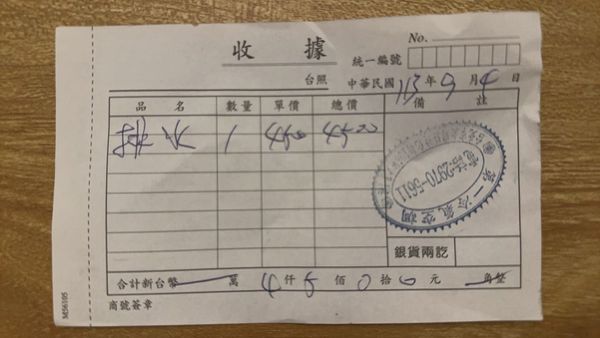 No.
收 據
統一編號
台照
中華民國 113 年 9 月 4 日
品 名 數量 單價 總價 備 註
排水 1 4500 4500
第一冷氣空調
電話:2970-5611
銀貨兩訖
合計新台幣 萬 4 仟 5 佰 0 拾 0 元 角整
商號簽章
MS6105